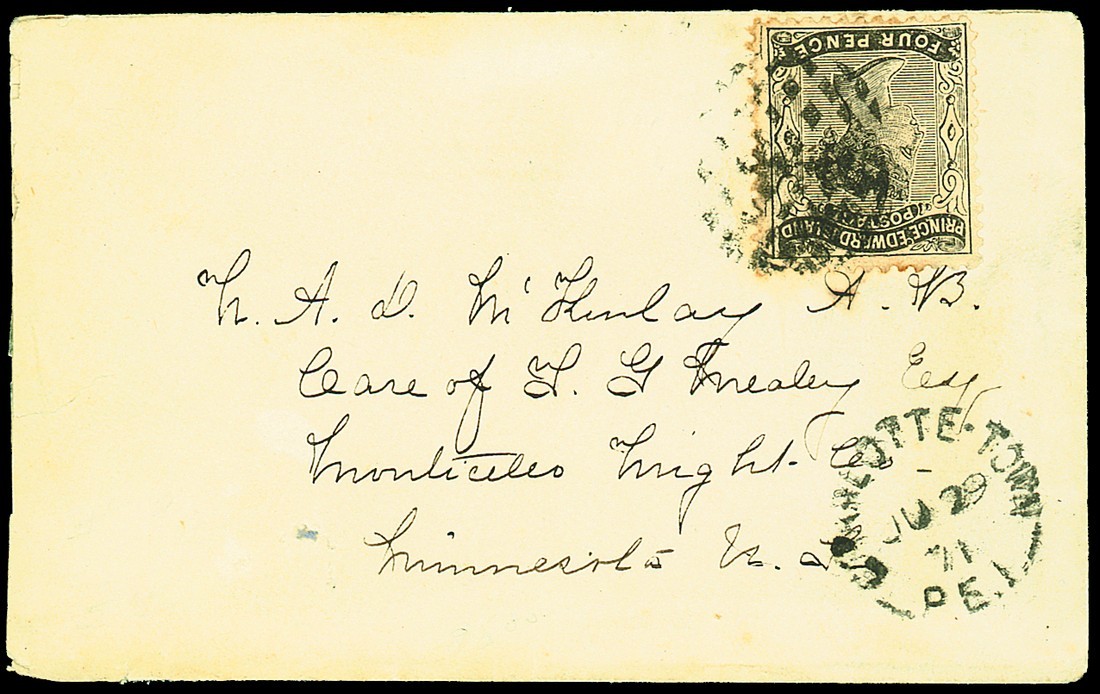 FOUR PENCE
POSTAGE
PRINCE EDWARD ISLAND
A. D. McKinlay A. B.
Care of T. G Mealey Esq
Monticello Wright Co
Minnesota U. S
CHARLOTTE-TOWN
JU 29
71
P.E.I.